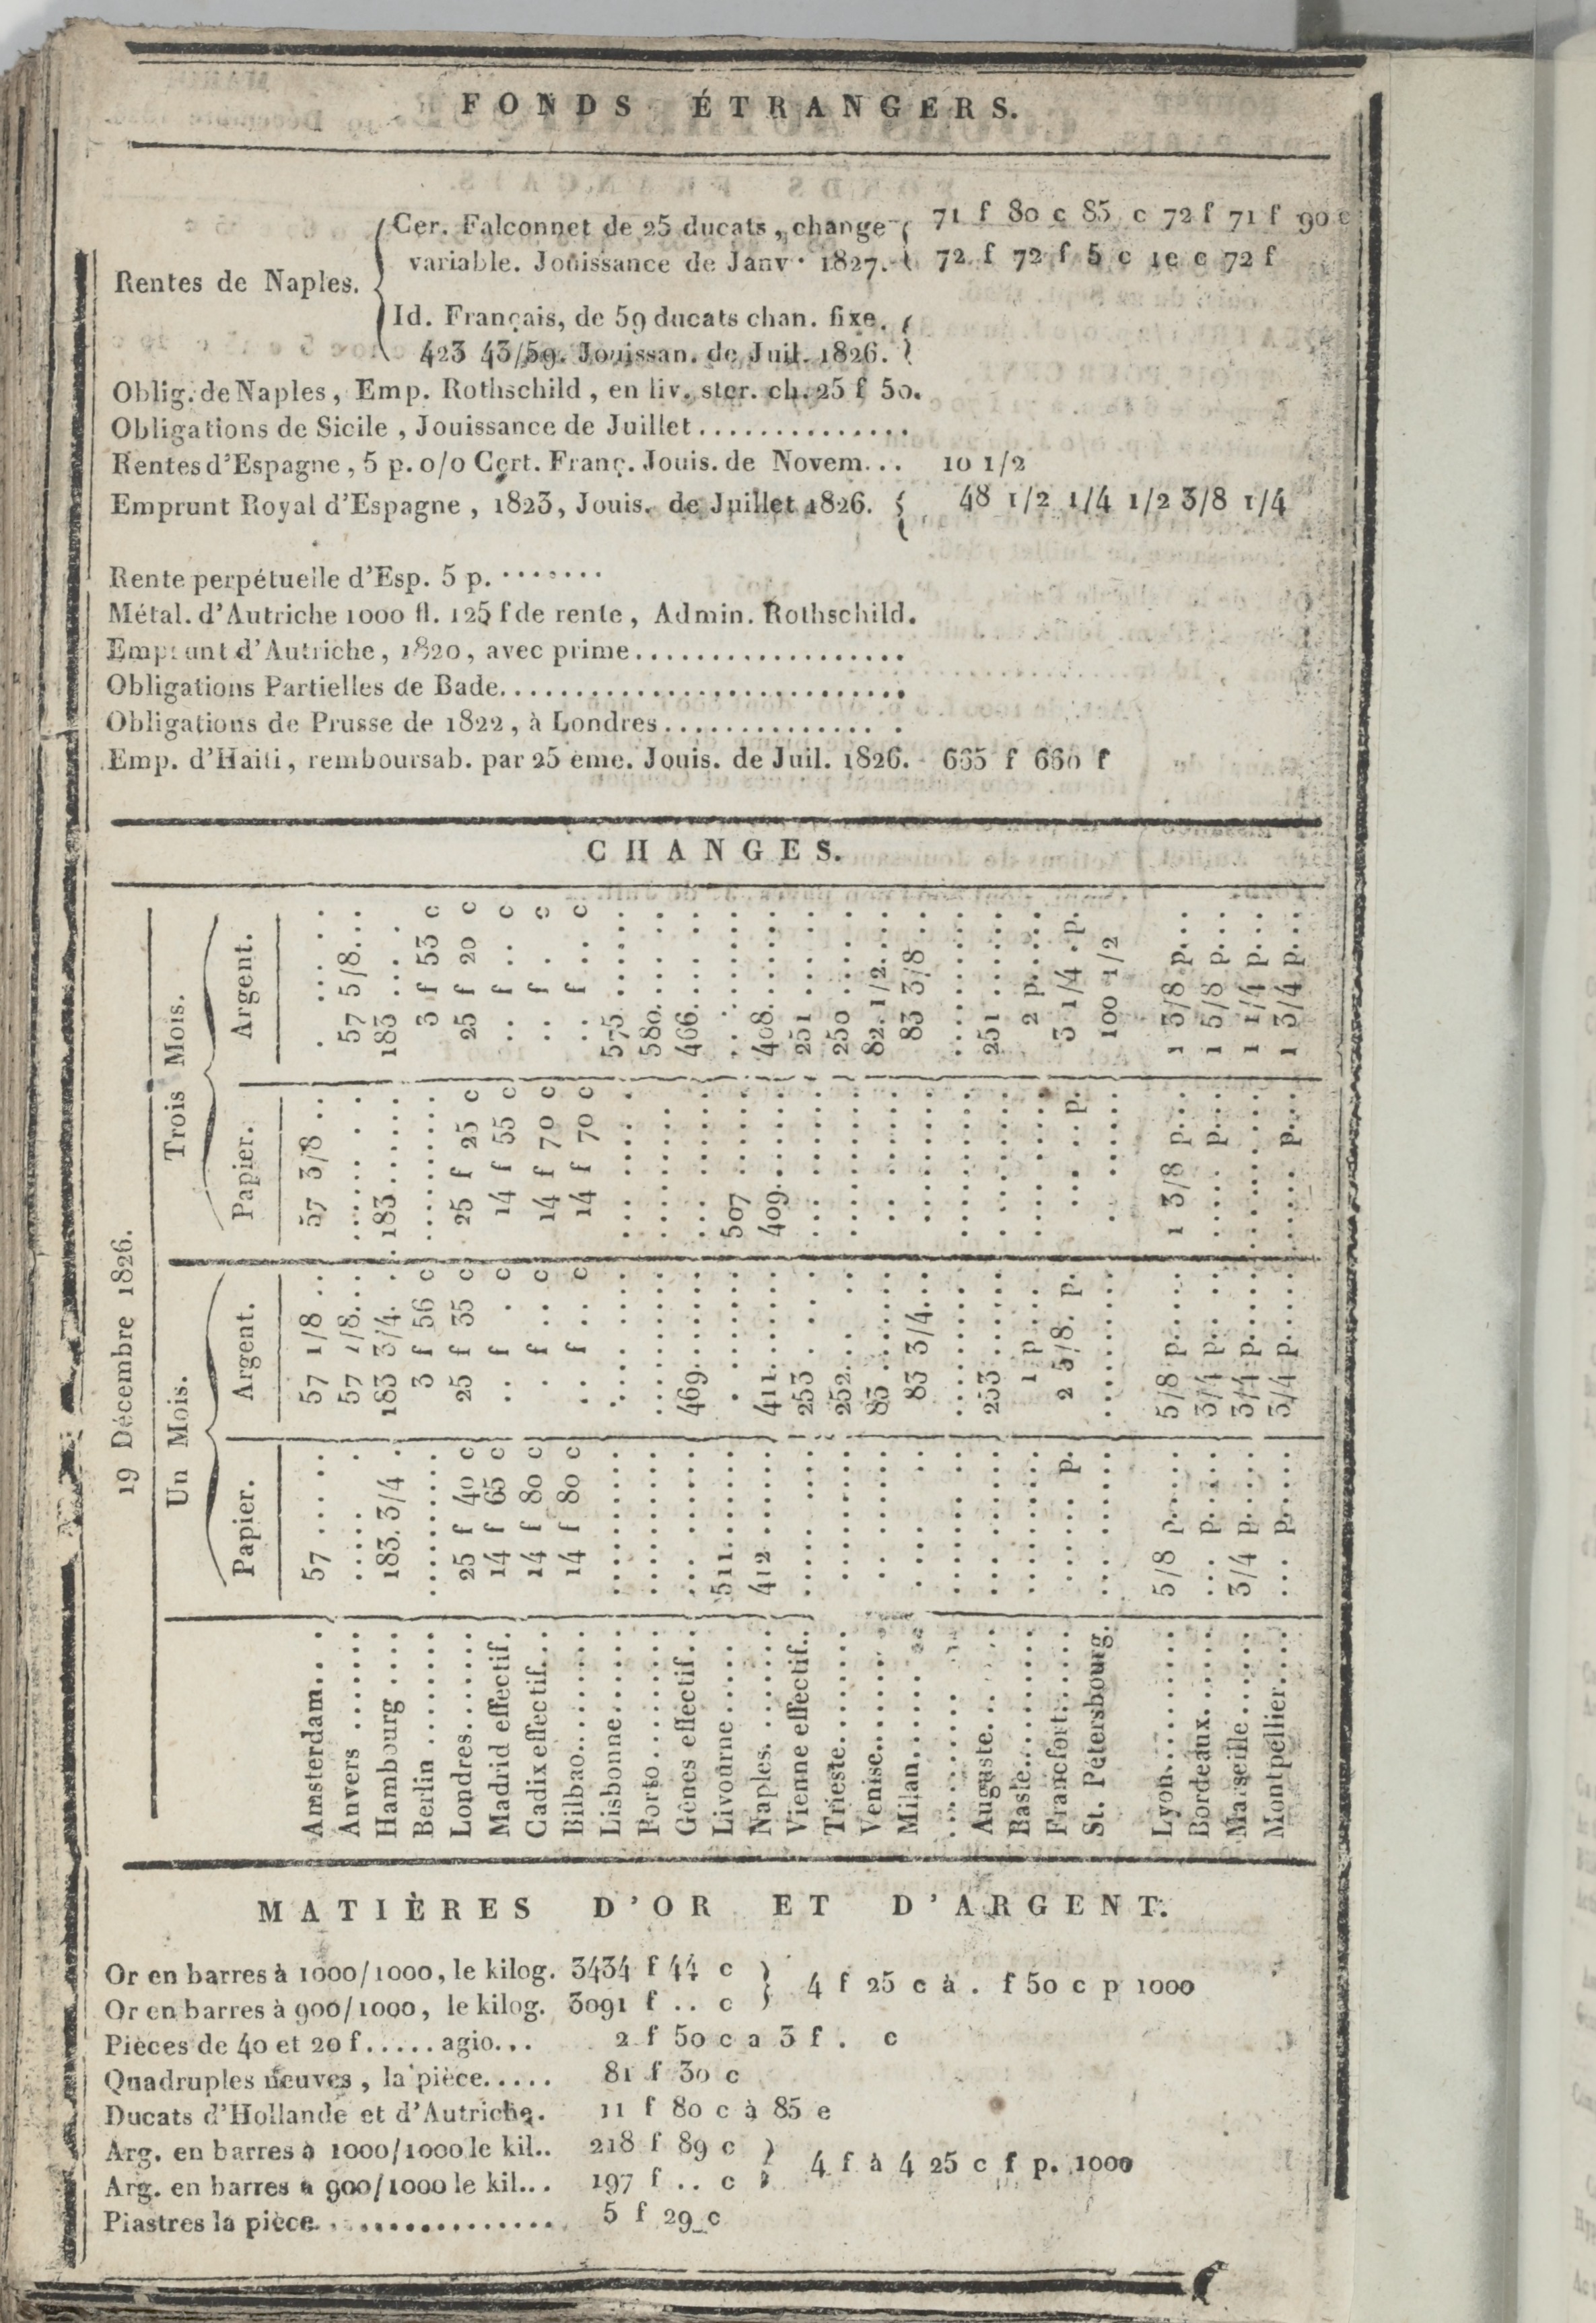 FONDS ÉTRANGERS.
Rentes de Naples.
Cer. Falconnet de 25 ducats, change 71 f 80 c 85 c 72 f 71 f 90 c
variable. Jouissance de Janv. 1827. 72 f 72 f 5 c 1e c 72 f
Id. Français, de 59 ducats chan. fixe.
423 43/59. Jouissan. de Juil. 1826.
Oblig. de Naples, Emp. Rothschild, en liv. ster. ch. 25 f 50.
Obligations de Sicile, Jouissance de Juillet..............
Rentes d'Espagne, 5 p. o/o Cert. Franç. Jouis. de Novem... 10 1/2
Emprunt Royal d'Espagne, 1823, Jouis. de Juillet 1826. 48 1/2 1/4 1/2 3/8 1/4
Rente perpétuelle d'Esp. 5 p. .......
Métal. d'Autriche 1000 fl. 125 f de rente, Admin. Rothschild.
Emprunt d'Autriche, 1820, avec prime..................
Obligations Partielles de Bade...........................
Obligations de Prusse de 1822, à Londres...............
Emp. d'Haiti, remboursab. par 25 ème. Jouis. de Juil. 1826. 665 f 660 f
CHANGES.
19 Décembre 1826.
Un Mois. Trois Mois.
Papier. Argent. Papier. Argent.
Amsterdam... 57 .... 57 1/8 .. 57 3/8 .. .....
Anvers ...... ..... 57 7/8... ..... 57 5/8...
Hambourg .... 183. 3/4 . 183 3/4. . 183 ..... 183 ....
Berlin ....... ........ 3 f 56 c ........ 3 f 53 c
Londres...... 25 f 40 c 25 f 35 c 25 f 25 c 25 f 20 c
Madrid effectif. 14 f 65 c .. f . c 14 f 55 c .. f .. c
Cadix effectif... 14 f 80 c . f .. c 14 f 70 c .. f . c
Bilbao........ 14 f 80 c .. f .. c 14 f 70 c .. f .. c
Lisbonne...... ........ ........ ........ 575......
Porto........ ........ ........ ........ 580......
Gênes effectif... ........ 469...... ........ 466......
Livourne..... 511...... ........ 507 ...... ........
Naples....... 412 ...... 411...... 409...... 408......
Vienne effectif.. ........ 253 ... ........ 251 ....
Trieste....... ........ 252... ........ 250 ....
Venise....... ........ 83 ...... ........ 82. 1/2...
Milan....... ........ 83 3/4... ........ 83 3/8 ..
........ ........ ........ ........ ........
Auguste.... ........ 253...... ........ 251 ......
Basle........ ........ 1 p .... ........ 2 p.....
Francfort...... ..... p. 2 5/8. p. ..... p. 3 1/4 . p.
St. Pétersbourg. ........ ........ ...... 100 1/2
Lyon......... 5/8 p..... 5/8 p.... 1 3/8 p... 1 3/8 p...
Bordeaux...... ... p..... 3/4 p... .... p... 1 5/8 p...
Marseille...... 3/4 p.... 3/4 p.... ........ 1 1/4 p...
Montpellier.... ... p.... 3/4 p.... ..... p... 1 3/4 p...
MATIÈRES D'OR ET D'ARGENT.
Or en barres à 1000/1000, le kilog. 3434 f 44 c
4 f 25 c à . f 50 c p 1000
Or en barres à 900/1000, le kilog. 3091 f .. c
Pièces de 40 et 20 f...... agio... 2 f 50 c a 3 f . c
Quadruples neuves, la pièce..... 81 f 30 c
Ducats d'Hollande et d'Autriche. 11 f 80 c à 85 e
Arg. en barres à 1000/1000 le kil.. 218 f 89 c
4 f à 4 25 c f p. 1000
Arg. en barres a 900/1000 le kil... 197 f .. c
Piastres la pièce................ 5 f 29 c